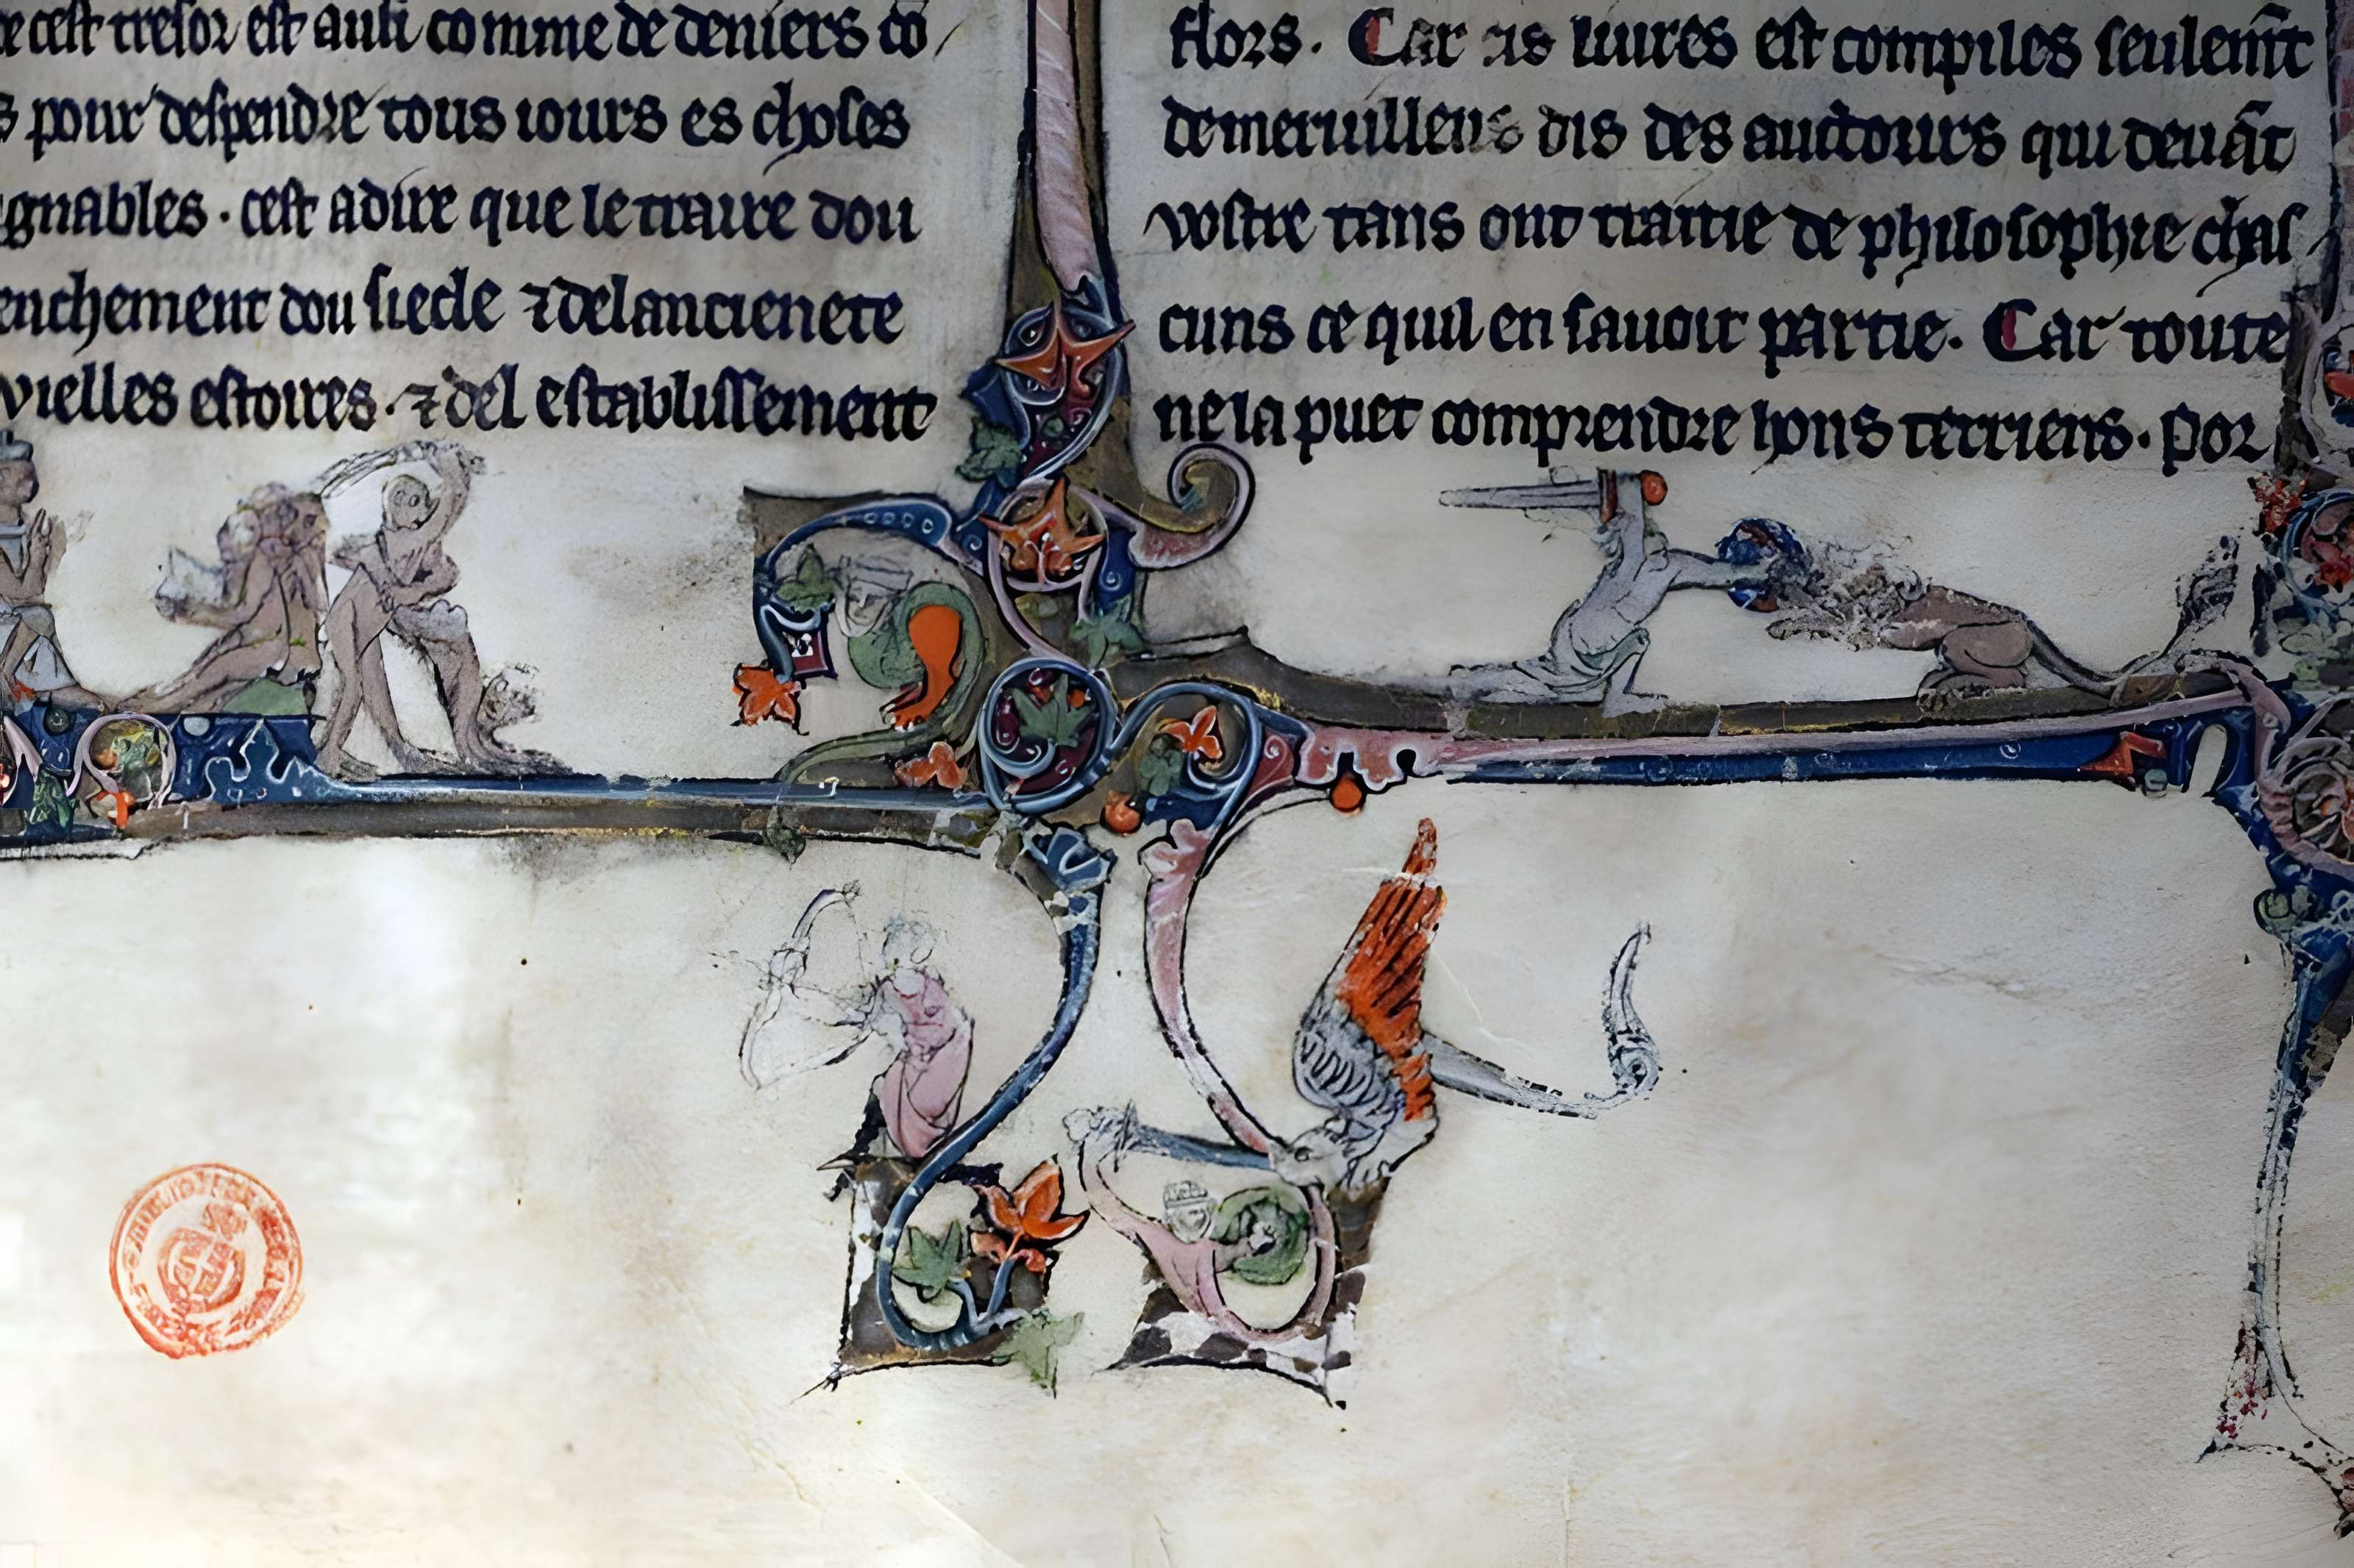 cest tresor est ausi comme de deniers cō
s pour despendre tous iours es choses
gnables . cest adire que le traire dou
enchement dou siecle ⁊ delancienete
vielles estoires . ⁊ del establissement
flors . Car cis liures est compiles seulem̄t
demeruilleus dis des auctours qui deuāt
vostre tans ont traitie de philosophie chas
cuns ce quil en sauoit partie . Car toute
ne la puet comprendre hons terriens . Por